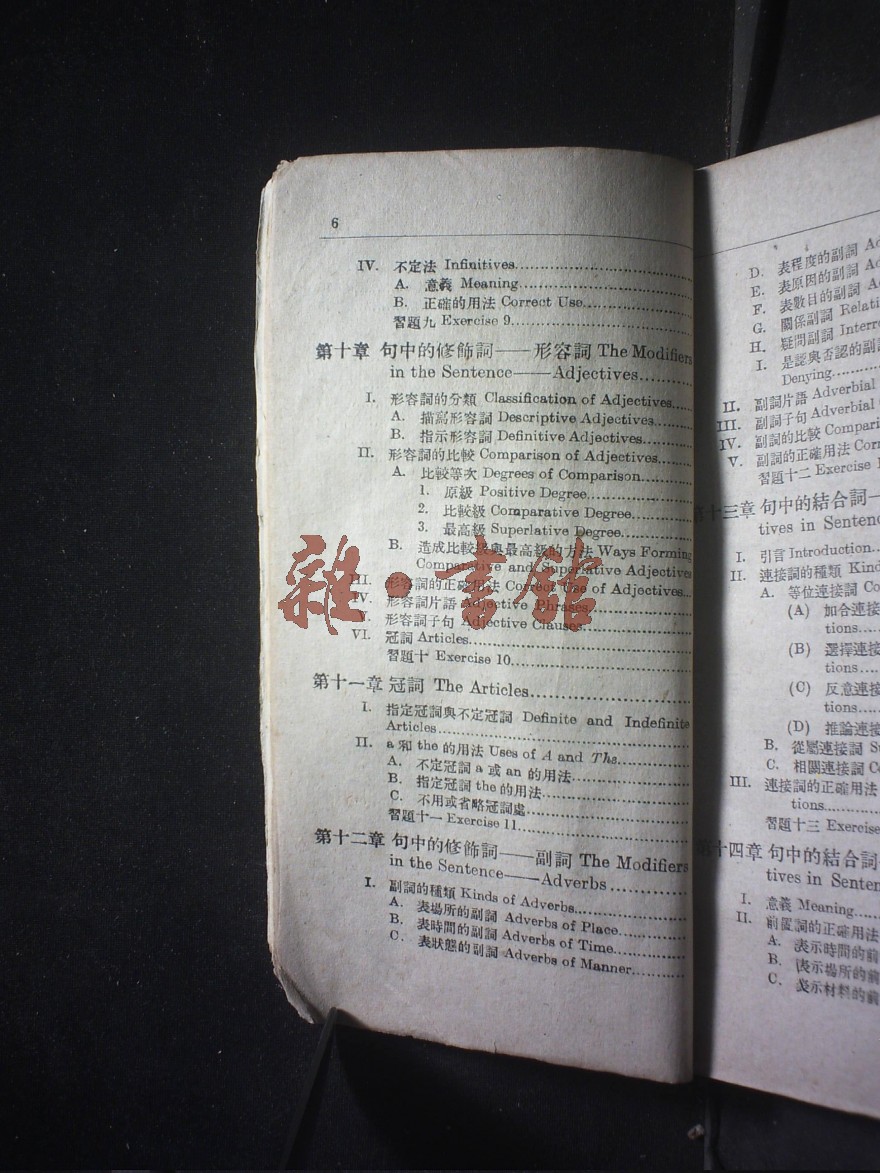 6
IV. 不定法 Infinitives
A. 意義 Meaning
B. 正確的用法 Correct Use
習題九 Exercise 9
第十章 句中的修飾詞——形容詞 The Modifiers
in the Sentence——Adjectives
I. 形容詞的分類 Classification of Adjectives
A. 描寫形容詞 Descriptive Adjectives
B. 指示形容詞 Definitive Adjectives
II. 形容詞的比較 Comparison of Adjectives
A. 比較等次 Degrees of Comparison
1. 原級 Positive Degree
2. 比較級 Comparative Degree
3. 最高級 Superlative Degree
B. 造成比較級與最高級的方法 Ways Forming
Comparative and Superlative Adjectives
III. 形容詞的正確用法 Correct Use of Adjectives
IV. 形容詞片語 Adjective Phrases
V. 形容詞子句 Adjective Clauses
VI. 冠詞 Articles
習題十 Exercise 10
第十一章 冠詞 The Articles
I. 指定冠詞與不定冠詞 Definite and Indefinite
Articles
II. a 和 the 的用法 Uses of A and The
A. 不定冠詞 a 或 an 的用法
B. 指定冠詞 the 的用法
C. 不用或省略冠詞處
習題十一 Exercise 11
第十二章 句中的修飾詞——副詞 The Modifiers
in the Sentence——Adverbs
I. 副詞的種類 Kinds of Adverbs
A. 表場所的副詞 Adverbs of Place
B. 表時間的副詞 Adverbs of Time
C. 表狀態的副詞 Adverbs of Manner
雜·書館
D. 表程度的副詞
E. 表原因的副詞
F. 表數目的副詞
G. 關係副詞
H. 疑問副詞
I. 是認與否認的副
Denying
II. 副詞片語 Adverbial
III. 副詞子句 Adverbial
IV. 副詞的比較
V. 副詞的正確用法
習題十二 Exercise
十三章 句中的結合詞
tives in
I. 引言 Introduction
II. 連接詞的種類
A. 等位連接詞
(A) 加合連接
tions
(B) 選擇連接
tions
(C) 反意連接
tions
(D) 推論連接
tions
B. 從屬連接詞
C. 相關連接詞
III. 連接詞的正確用法
tions
習題十三 Exercise
十四章 句中的結合詞
tives in
I. 意義 Meaning
II. 前置詞的正確用法
A. 表示時間的前
B. 表示場所的前
C. 表示材料的前